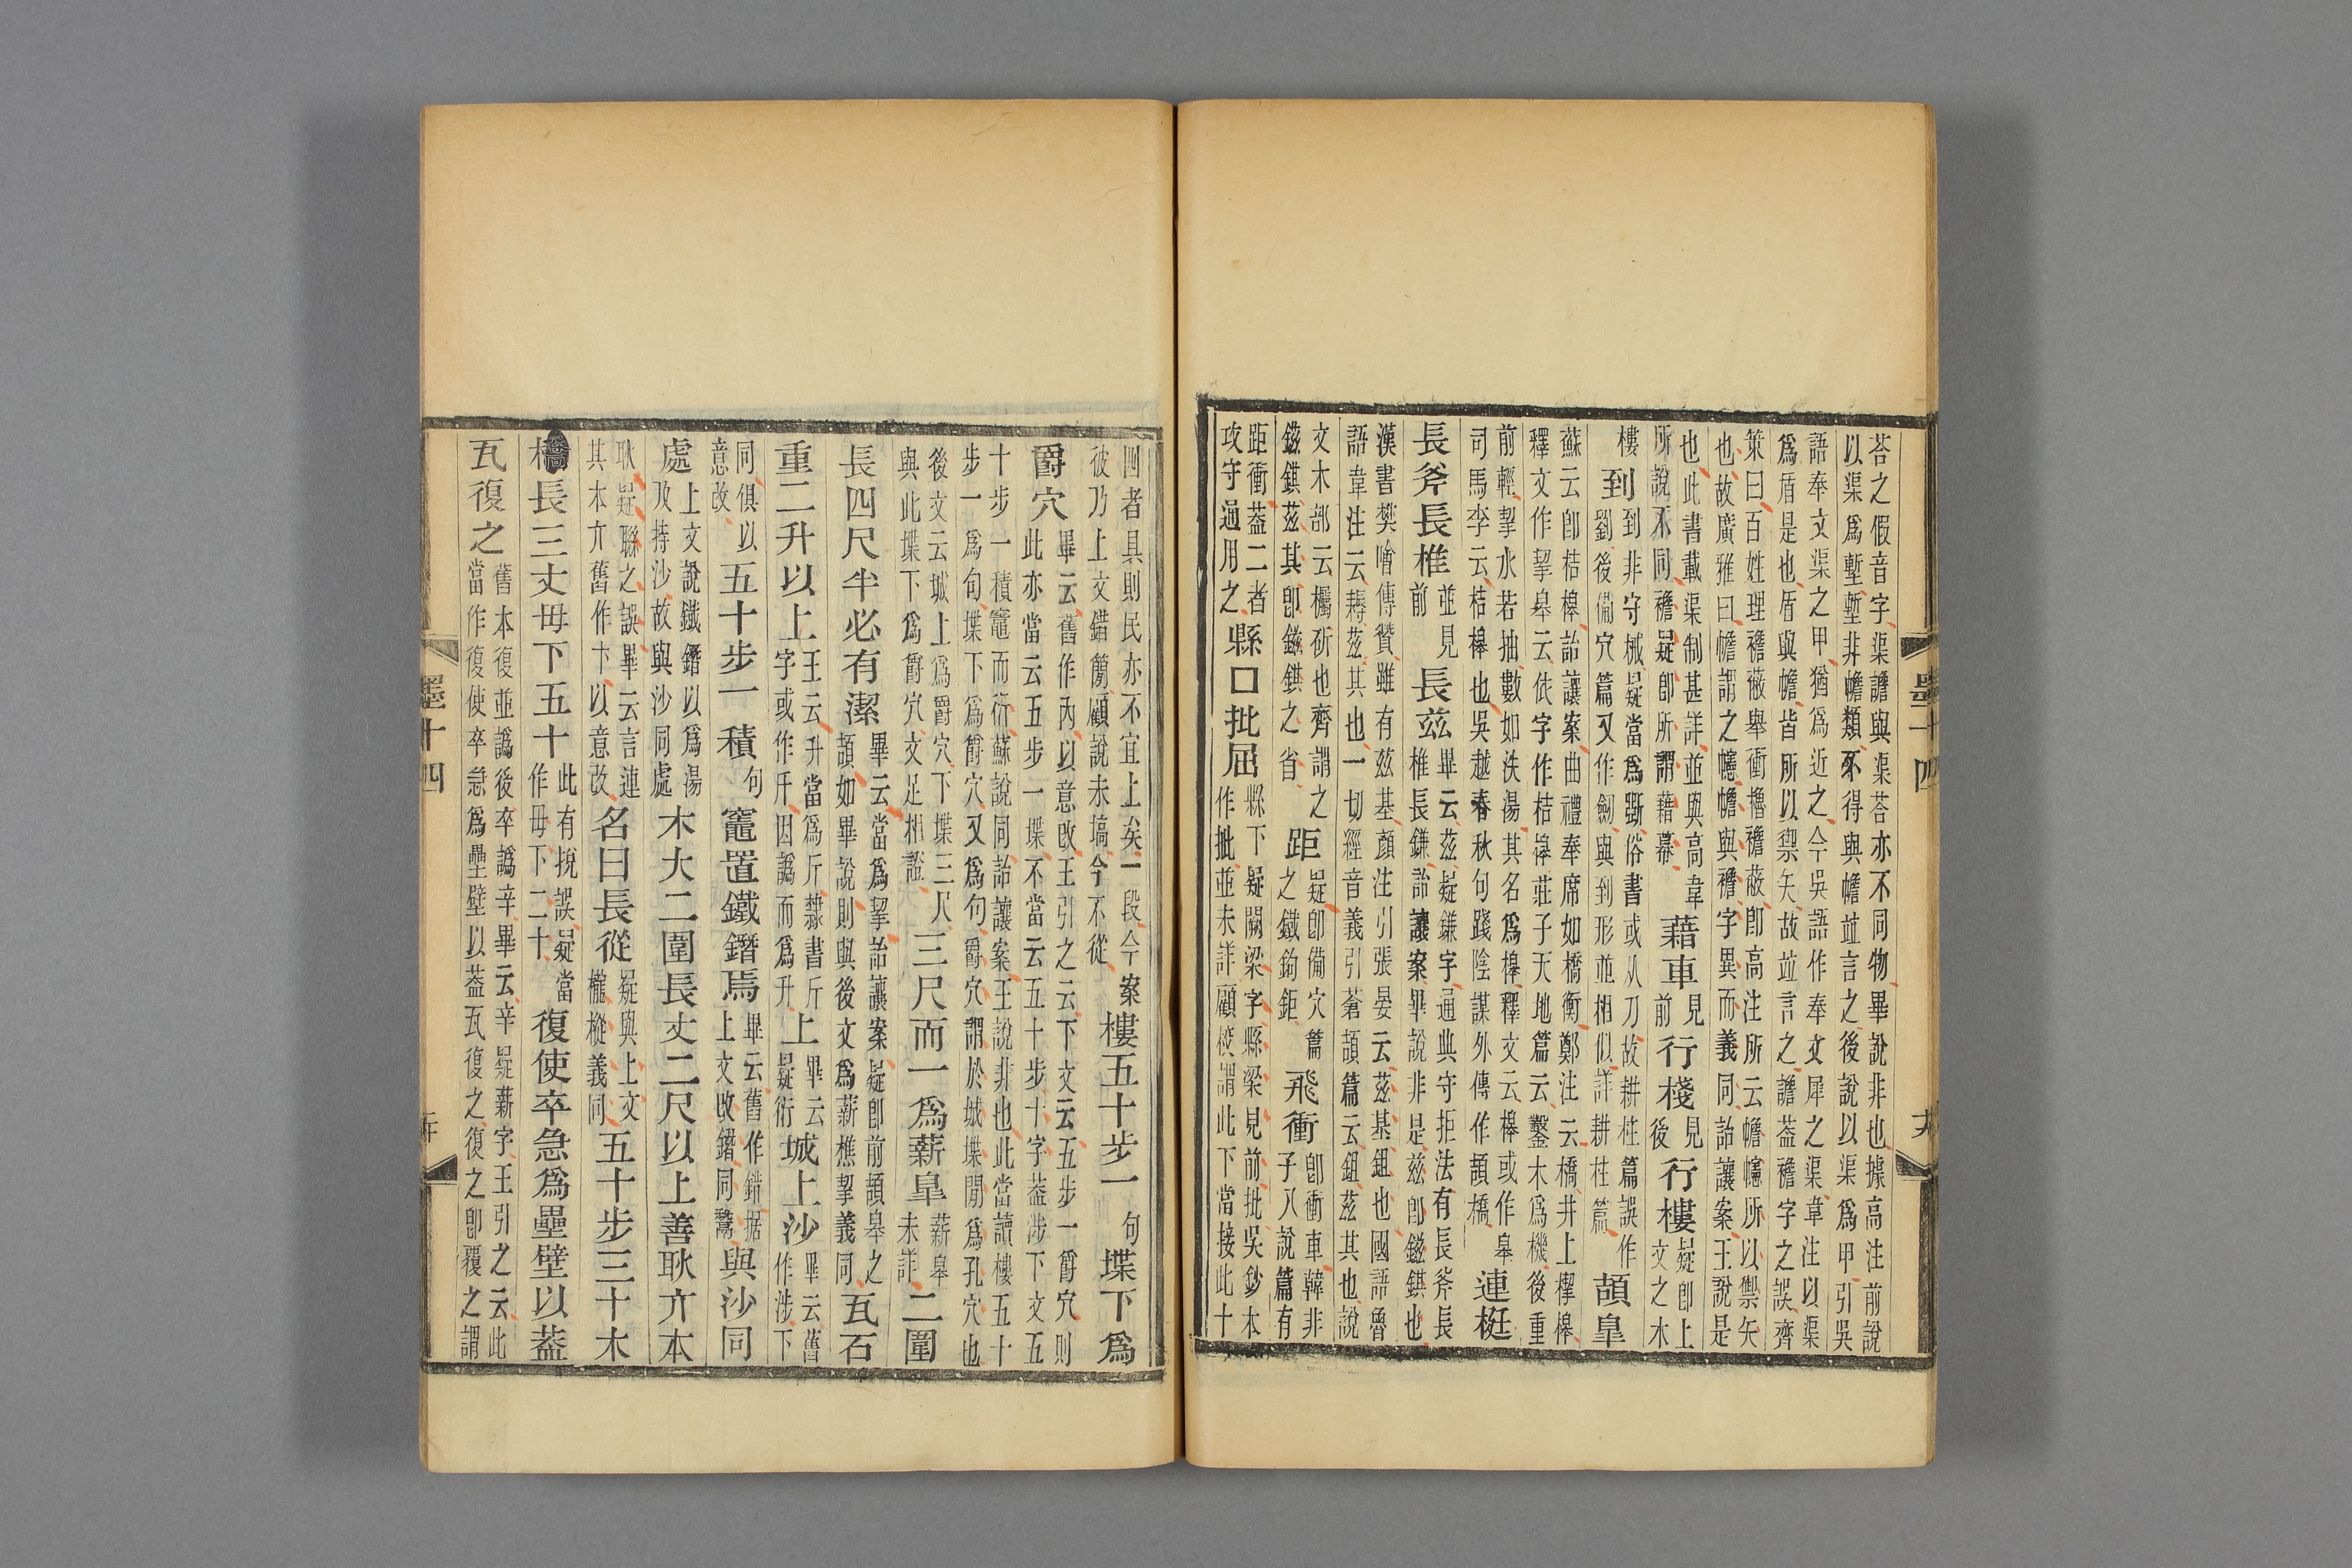 荅之假音字渠譫與渠荅亦不同物畢說非也據高注前說
以渠爲塹塹非幨類不得與幨竝言之後說以渠爲甲引吳
語奉文渠之甲猶爲近之今吳語作奉文犀之渠韋注以渠
爲盾是也盾與幨皆所以禦矢故竝言之譫葢襜字之誤齊
策曰百姓理襜蔽舉衝櫓襜蔽卽高注所云幨幰所以禦矢
也故廣雅曰幨謂之幰幨與襜字異而義同詒讓案王說是
也此書載渠制甚詳並與高韋
所說不同襜疑卽所謂藉幕 藉車 見前 行棧 見後 行樓 疑卽上文之木
樓 到 到非守械疑當爲斲俗書或从刀故耕柱篇誤作
劉後備穴篇又作劒與到形並相似詳耕柱篇 頡皐
蘇云卽桔槔詒讓案曲禮奉席如橋衡鄭注云橋井上㮮槔
釋文作挈皋云依字作桔槔莊子天地篇云鑿木爲機後重
前輕挈水若抽數如泆湯其名爲槔釋文云槔或作皋
司馬李云桔槔也吳越春秋句踐陰謀外傳作頡橋 連梃
長斧長椎 並見前 長茲 畢云茲疑鎌字通典守拒法有長斧長
椎長鎌詒讓案畢說非是茲卽鎡錤也
漢書樊噲傳贊雖有茲基顏注引張晏云茲基鉏也國語魯
語韋注云耨茲其也一切經音義引蒼頡篇云鉏茲其也說
文木部云欘斫也齊謂之
鎡錤茲其卽鎡錤之省 距 疑卽備穴篇之鐵鉤鉅 飛衝 卽衝車韓非子八說篇有
距衝葢二者
攻守通用之 縣口批屈 縣下疑闕梁字縣梁見前批吳鈔本
作枇並未詳顧校謂此下當接此十
墨十四
四者具則民亦不宜上矣一段今案
彼乃上文錯簡顧說未塙今不從 樓五十步一 句 堞下爲
爵穴 畢云舊作內以意改王引之云下文云五步一爵穴則
此亦當云五步一堞不當云五十步十字葢涉下文五
十步一積竈而衍蘇說同詒讓案王說非也此當讀樓五十
步一爲句堞下爲爵穴又爲句爵穴謂於城堞閒爲孔穴也
後文云城上爲爵穴下堞三尺
與此堞下爲爵穴文足相證 三尺而一爲薪皐 薪皋未詳 二圍
長四尺半必有潔 畢云當爲挈詒讓案疑卽前頡皋之
頡如畢說則與後文爲薪樵挈義同 瓦石
重二升以上 王云升當爲斤隸書斤
字或作𠦑因譌而爲升 上 畢云疑衍 城上沙 畢云舊作涉下
同俱以
意改 五十步一積 句 竈置鐵鐕焉 畢云舊作錯据
上文改鐕同鬵 與沙同
處 上文說鐵鐕以爲湯
及持沙故與沙同處 木大二圍長丈二尺以上善耿亣本
耿疑聯之誤畢云言連
其木亣舊作卞以意改 名曰長從 疑與上文櫳樅義同 五十步三十木
橋長三丈毋下五十 此有捝誤疑當作毋下二十 復使卒急爲壘壁以葢
瓦復之 舊本復並譌後卒譌辛畢云辛疑薪字王引之云此
當作復使卒急爲壘壁以葢瓦復之復之卽覆之謂
墨十四